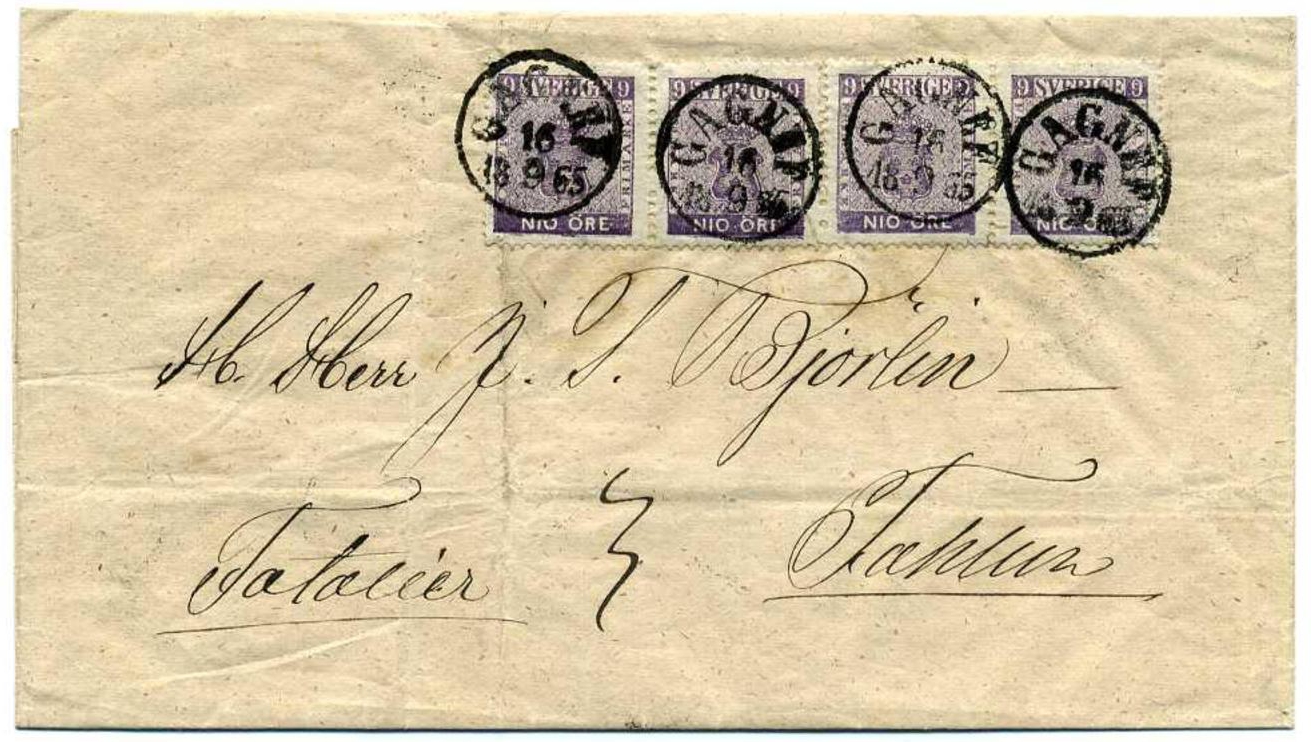 9 SVERIGE 9 9 SVERIGE 9 9 SVERIGE 9 9 SVERIGE 9
FRIMÄRKE
NIO ÖRE NIO ÖRE NIO ÖRE NIO ÖRE
GAGNEF GAGNEF GAGNEF GAGNEF
16 16 16 16
18 9 65 18 9 65 18 9 65 18 9 65
H. Herr J. S. Björlin
Fahlun